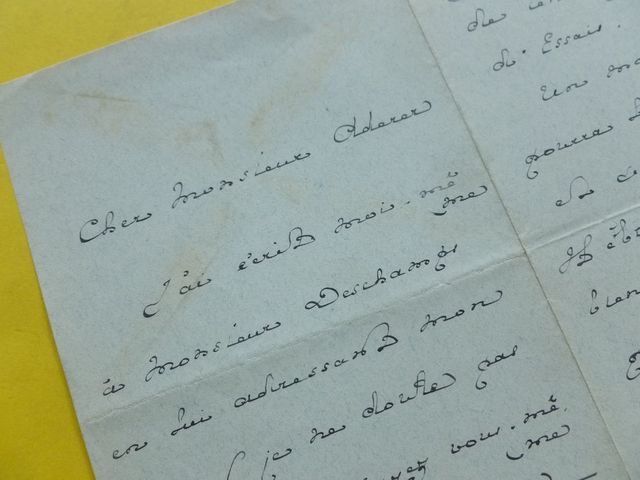 Cher Monsieur Aderer
J'ai écrit moi-mê
me
à Monsieur Deschamps
en lui adressant mon
je ne doute pas
vous-mê.
me
de
d'Essais.
Un
pourra
est